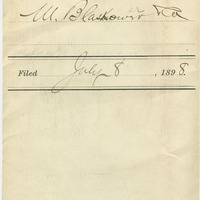 M. Blaskower
Filed July 8, 1898.